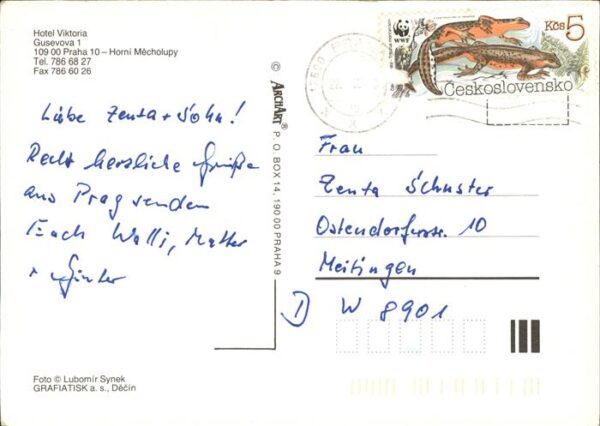 Hotel Viktoria
Gusevova 1
109 00 Praha 10 – Horní Měcholupy
Tel. 786 68 27
Fax 786 60 26
Kčs 5
WWF
Československo
Liebe Zenta + John!
Recht herzliche Grüße
aus Prag senden
Euch Walli, Mutter
+ Günter
© ARCHART® P. O. BOX 14, 190 00 PRAHA 9
Frau
Zenta Schuster
Ostendorferstr. 10
Meitingen
D W 8901
Foto © Lubomír Synek
GRAFIATISK a. s., Děčín